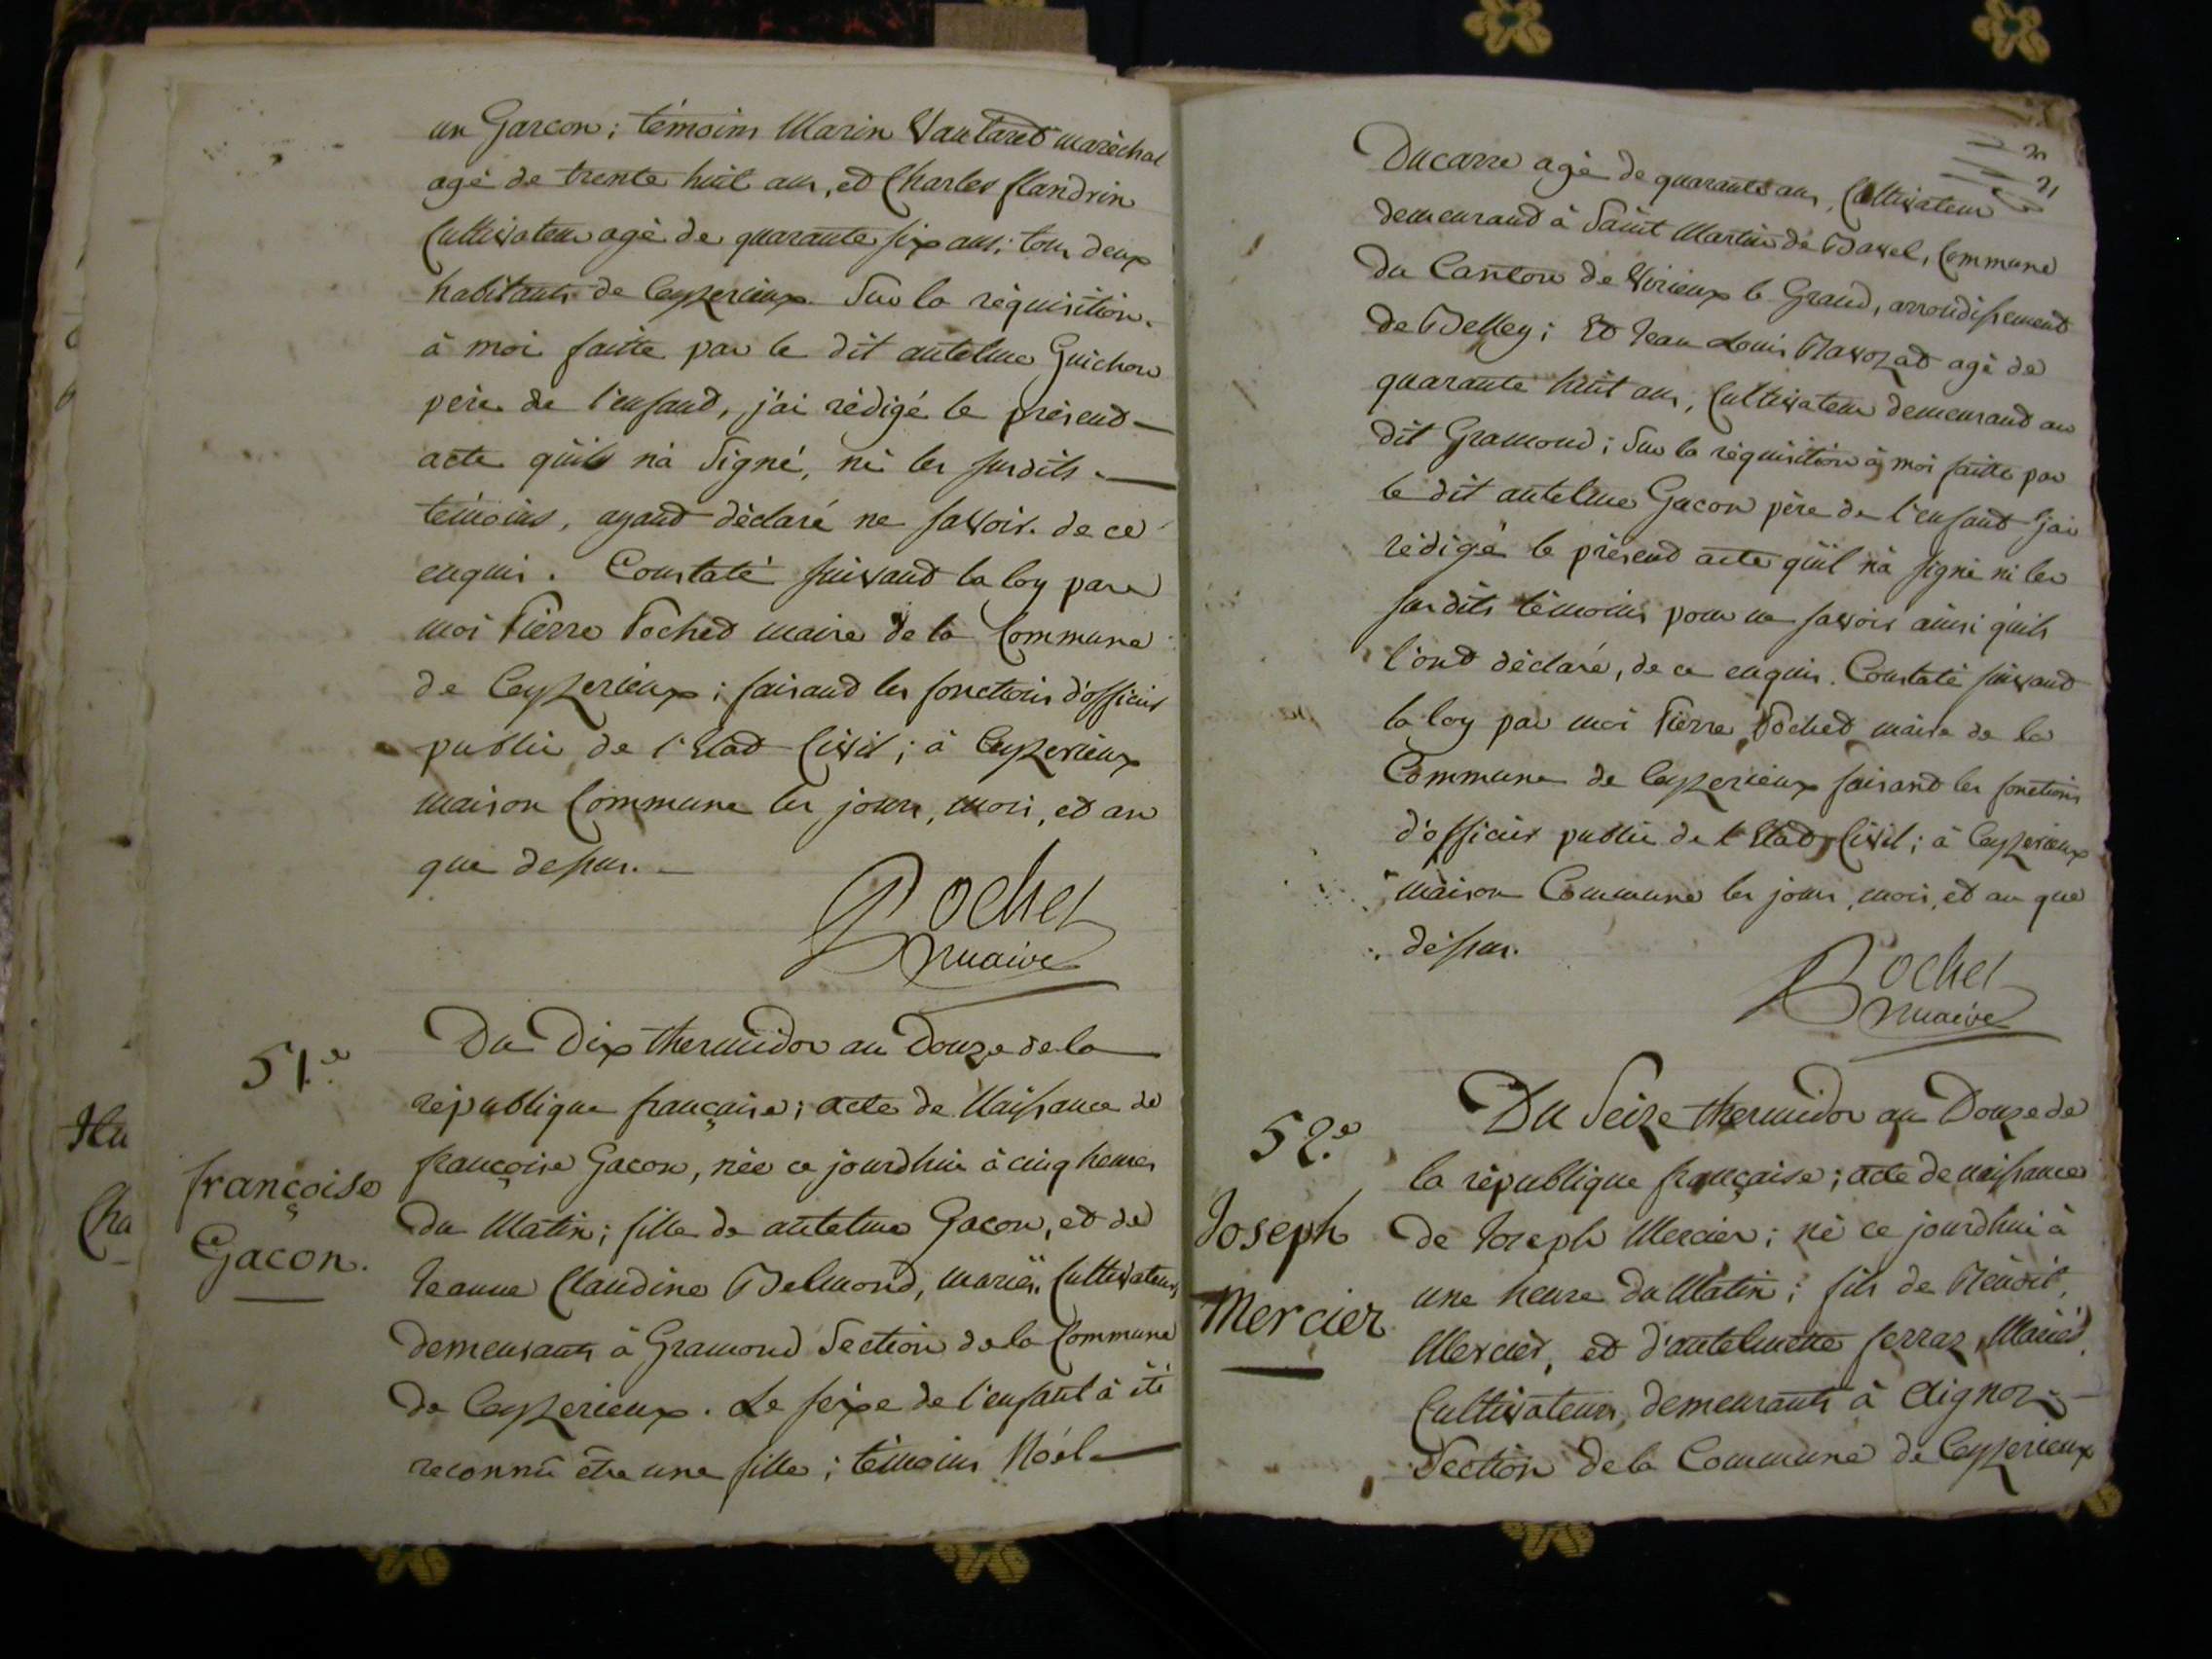 un Garcon; témoins Marin Vautaret maréchal
agé de trente huit ans, et Charles flandrin
Cultivateur agé de quarante six ans; tous deux
habitants de Ceyzerieux. Sur la réquisition
à moi faitte par le dit antelme Guichon
père de l'enfant, j'ai rédigé le présent
acte qu'ils n'à signé, ni les susdits
témoins, ayant déclaré ne savoir. de ce
enquis. Constaté suivant la loy par
moi Pierre Pochet maire de la Commune
de Ceyzerieux; faisant les fonctions d'officier
public de l'Etat Civil; à Ceyzerieux
maison Commune les jours, mois, et an
que dessus.
Pochet
maire
51.e
françoise
Gacon.
Du Dix thermidor an Douze de la
république française; acte de Naissance de
françoise Gacon, née ce jourdhui à cinq heures
du Matin; fille de antelme Gacon, et de
Jeanne Claudine Belmond, mariés Cultivateurs
demeurants à Gramond Section de la Commune
de Ceyzerieux. Le sexe de l'enfant à été
reconnû être une fille; témoins Noël
Ita
Cha
Ducarre agé de quarante ans, Cultivateur
demeurant à Saint Martin de Bavel, Commune
du Canton de Virieux le Grand, arrondissement
de Belley; Et Jean Louis Ravozat agé de
quarante huit ans, Cultivateur demeurant au
dit Gramond; Sur la réquisition à moi faitte par
le dit antelme Gacon père de l'enfant j'ai
rédigé le présent acte qu'il n'à signé ni les
susdits témoins pour ne savoir ainsi qu'ils
l'ont déclaré, de ce enquis. Constaté suivant
la loy par moi Pierre Pochet maire de la
Commune de Ceyzerieux faisant les fonctions
d'officier public de l'Etat Civil; à Ceyzerieux
maison Commune les jours, mois, et an que
dessus.
Pochet
maire
52.e
Joseph
Mercier
Du Seize thermidor an Douze de
la république française; acte de naissance
de Joseph Mercier; né ce jourdhui à
une heure du Matin; fils de Bénoit
Mercier, et d'antelmette ferraz, Mariés,
Cultivateurs, demeurants à Aignoz
Section de la Commune de Ceyzerieux